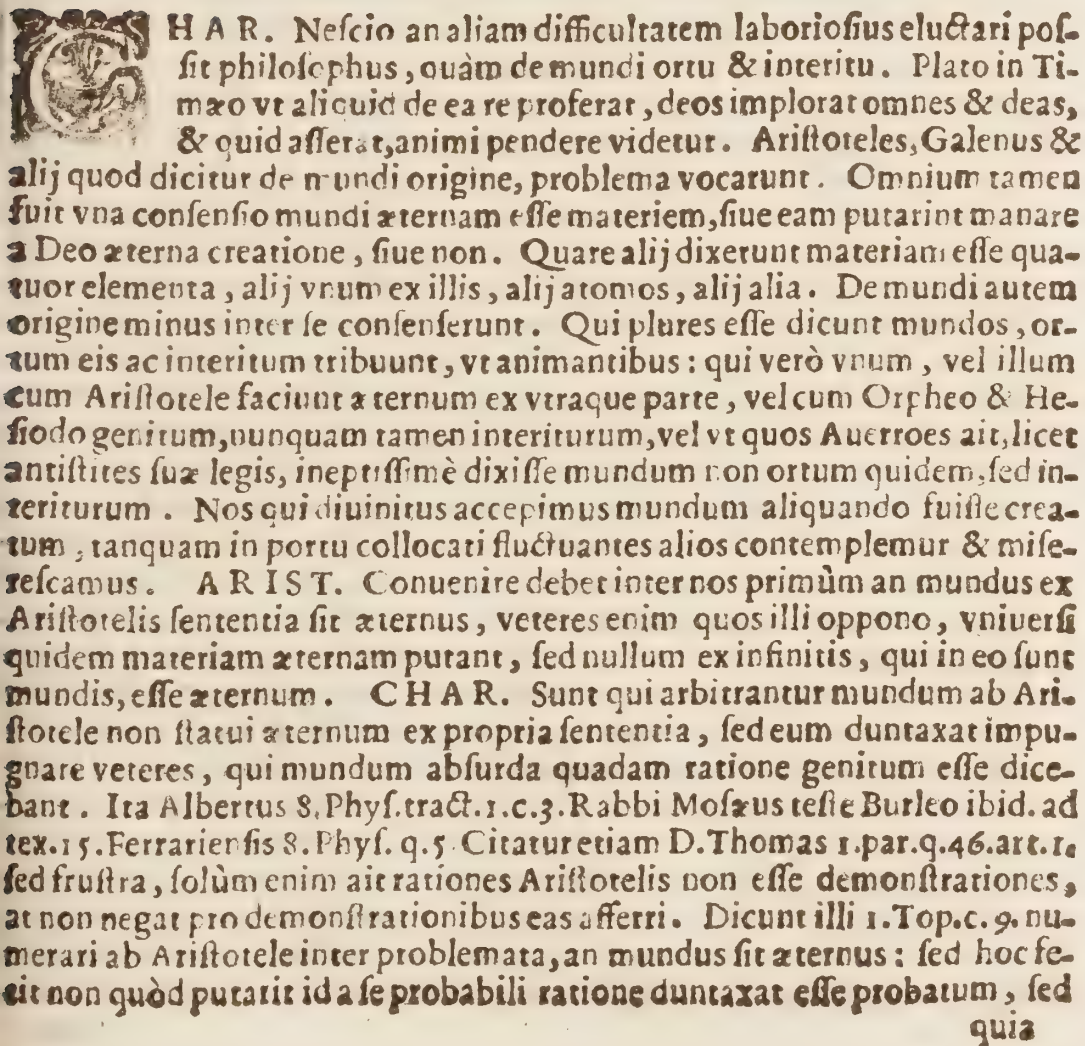 CHAR. Neſcio an aliam difficultatem laborioſius eluctari poſ-
ſit philoſophus, quàm de mundi ortu & interitu. Plato in Ti-
mæo vt aliquid de ea re proferat, deos implorat omnes & deas,
& quid afferat, animi pendere videtur. Ariſtoteles, Galenus &
alij quod dicitur de mundi origine, problema vocarunt. Omnium tamen
fuit vna conſenſio mundi æternam eſſe materiem, ſiue eam putarint manare
a Deo æterna creatione, ſiue non. Quare alij dixerunt materiam eſſe qua-
tuor elementa, alij vnum ex illis, alij atomos, alij alia. De mundi autem
origine minus inter ſe conſenſerunt. Qui plures eſſe dicunt mundos, or-
tum eis ac interitum tribuunt, vt animantibus: qui verò vnum, vel illum
cum Ariſtotele faciunt æternum ex vtraque parte, vel cum Orpheo & He-
ſiodo genitum, nunquam tamen interiturum, vel vt quos Auerroes ait, licet
antiſtites ſuæ legis, ineptiſſimè dixiſſe mundum non ortum quidem, ſed in-
teriturum. Nos qui diuinitus accepimus mundum aliquando fuiſſe crea-
tum, tanquam in portu collocati fluctuantes alios contemplemur & miſe-
reſcamus. ARIST. Conuenire debet inter nos primùm an mundus ex
Ariſtotelis ſententia ſit æternus, veteres enim quos illi oppono, vniuerſi
quidem materiam æternam putant, ſed nullum ex infinitis, qui in eo ſunt
mundis, eſſe æternum. CHAR. Sunt qui arbitrantur mundum ab Ari-
ſtotele non ſtatui æternum ex propria ſententia, ſed eum duntaxat impu-
gnare veteres, qui mundum abſurda quadam ratione genitum eſſe dice-
bant. Ita Albertus 8. Phyſ. tract. 1. c. 3. Rabbi Moſæus teſte Burleo ibid. ad
tex. 15. Ferrarienſis 8. Phyſ. q. 5 Citatur etiam D. Thomas 1. par. q. 46. art. 1.
ſed fruſtra, ſolùm enim ait rationes Ariſtotelis non eſſe demonſtrationes,
at non negat pro demonſtrationibus eas afferri. Dicunt illi 1. Top. c. 9. nu-
merari ab Ariſtotele inter problemata, an mundus ſit æternus: ſed hoc fe-
cit non quòd putarit id a ſe probabili ratione duntaxat eſſe probatum, ſed
quia